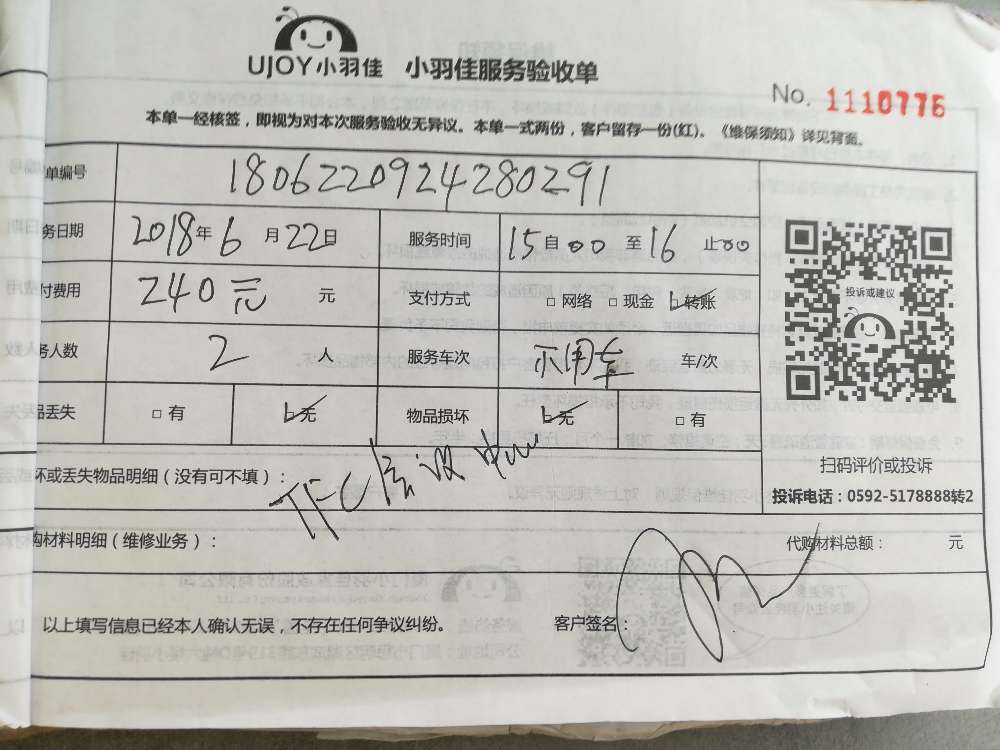 UJOY小羽佳 小羽佳服务验收单
No. 1110776
本单一经核签，即视为对本次服务验收无异议。本单一式两份，客户留存一份(红)。《维保须知》详见背面。
单编号 1806220924280291
务日期 2018年6月22日 服务时间 15自00至16止00
付费用 240元 元 支付方式 □ 网络 □ 现金 转账
务人数 2 人 服务车次 不用车 车/次
品丢失 □ 有 无 物品损坏 无 □ 有
投诉或建议
扫码评价或投诉
投诉电话：0592-5178888转2
坏或丢失物品明细（没有可不填）：
TFC
购材料明细（维修业务）： 代购材料总额： 元
以上填写信息已经本人确认无误，不存在任何争议纠纷。 客户签名：